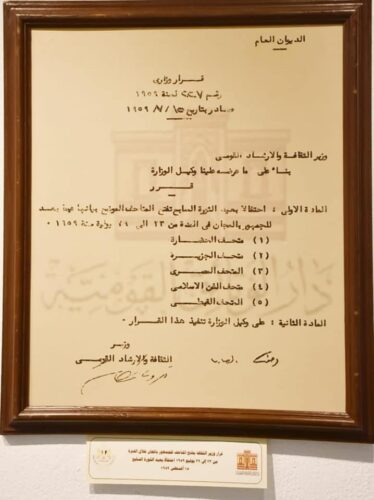 الديوان العام
قرار وزارى
رقم ٢٧٠٧ لسنة ١٩٥٩
صادر بتاريخ ١٥/٧/١٩٥٩
وزير الثقافة والارشاد القومى
بناء على ما عرضه علينا وكيل الوزارة
قرر
المادة الاولى : احتفالا بعيد الثورة السابع تفتح المتاحف الموضح بيانها فيما بعد
للجمهور بالمجان فى المدة من ٢٣ الى ٢٦ يولية سنة ١٩٥٩ ٠
(١) متحف الحضارة
(٢) متحف الجزيرة
(٣) المتحف المصرى
(٤) متحف الفن الاسلامى
(٥) المتحف القبطى
المادة الثانية : على وكيل الوزارة تنفيذ هذا القرار ٠
وزير
الثقافة والارشاد القومى
دار القومية
قرار وزير الثقافة بفتح المتاحف للجمهور بالمجان خلال الفترة
من ٢٣ إلى ٢٦ يوليو ١٩٥٩ احتفالا بعيد الثورة السابع
١٥ أغسطس ١٩٥٩